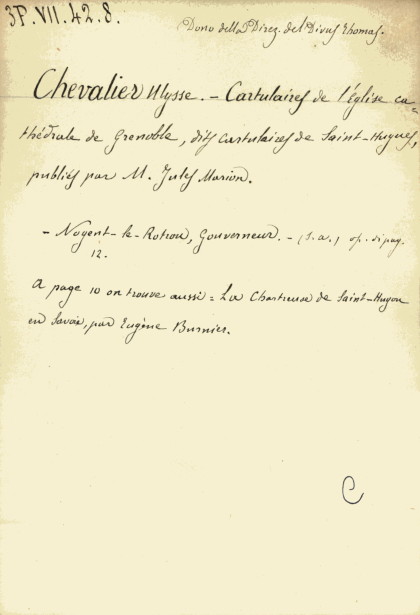 3P.VII.42.8.
Dono della Direz. del Divus Thomas.
Chevalier Ulysse. – Cartulaires de l'église ca=
thédrale de Grenoble, dits cartulaires de Saint-Hugues,
publiés par M. Jules Marion.
– Nogent-le-Rotrou, Gouverneur. – (s.a.) op. di pag.
12.
A page 10 on trouve aussi = La Chartreuse de Saint-Hugon
en Savoie, par Eugène Burnier.
C